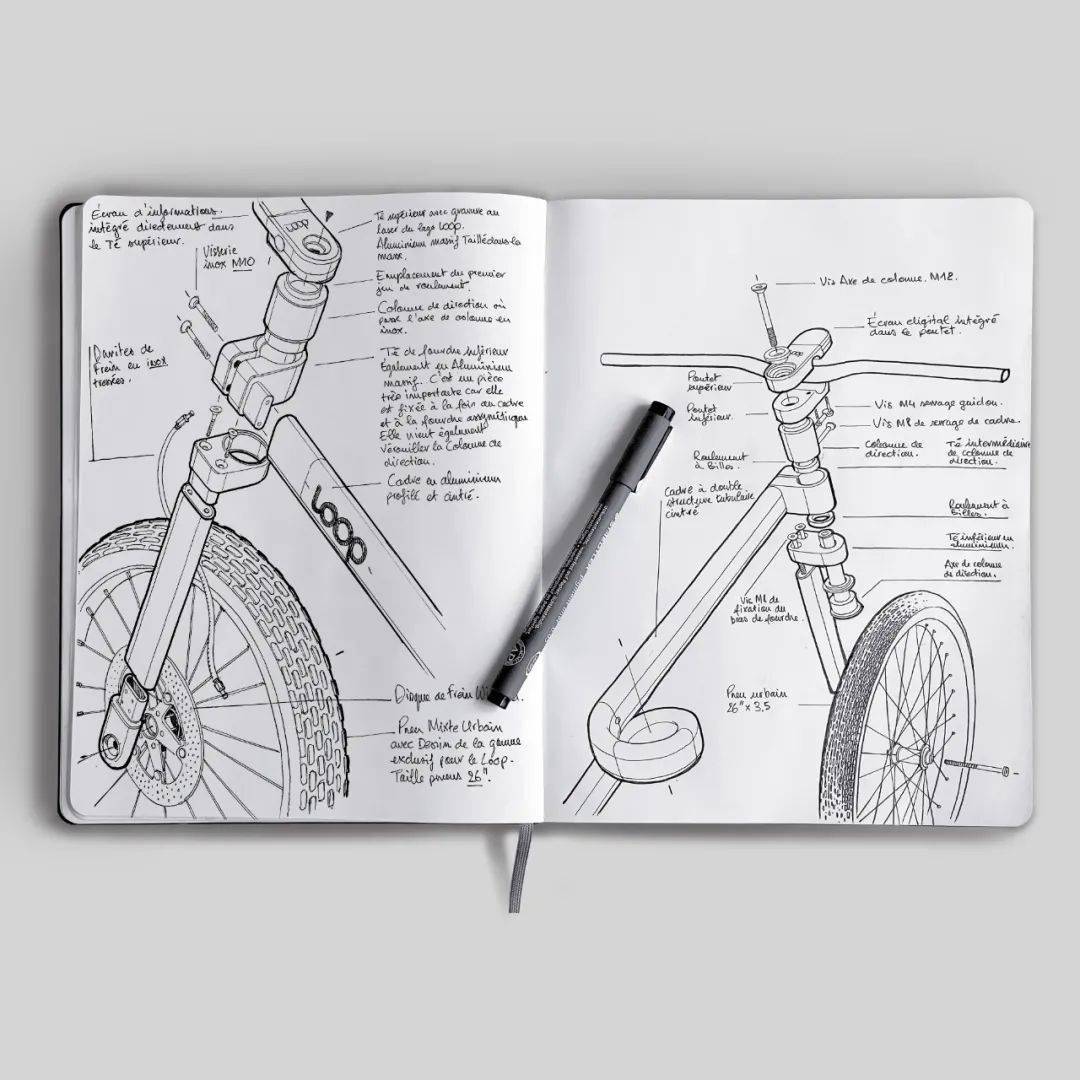 Écran d'informations.
intégré directement dans
le Té supérieur.
Visserie
inox M10
LOOP
Té supérieur avec gravure au
laser du logo LOOP.
Aluminium massif Taillé dans la
masse.
Emplacement du premier
jeu de roulement.
Colonne de direction où
passe l'axe de colonne en
inox.
Té de fourche inférieur
Également en Aluminium
massif. C'est un pièce
très importante car elle
est fixée à la fois au cadre
et à la fourche assymétrique
Elle vient également
Verouiller la Colonne de
direction.
Cadre en aluminium
profilé et cintré.
Durites de
Frein en inox
tressées.
LOOP
Disque de Frein
Pneu Mixte Urbain
avec Dessin de la gamme
exclusif pour le Loop.
Taille pneus 26".
Vis Axe de colonne. M12.
Écran digital intégré
dans le poutet.
Poutet
supérieur
Poutet
inférieur.
Vis M4 serrage guidon.
Vis M8 de serrage de cadre.
Colonne de
direction.
Té intermédiaire
de colonne de
direction.
Roulement
à Billes.
Cadre à double
structure tubulaire
cintré
Roulement à
Billes.
Té inférieur en
aluminium.
Axe de colonne
de direction.
Vis M8 de
fixation du
bras de fourche.
Pneu urbain
26" x 3.5